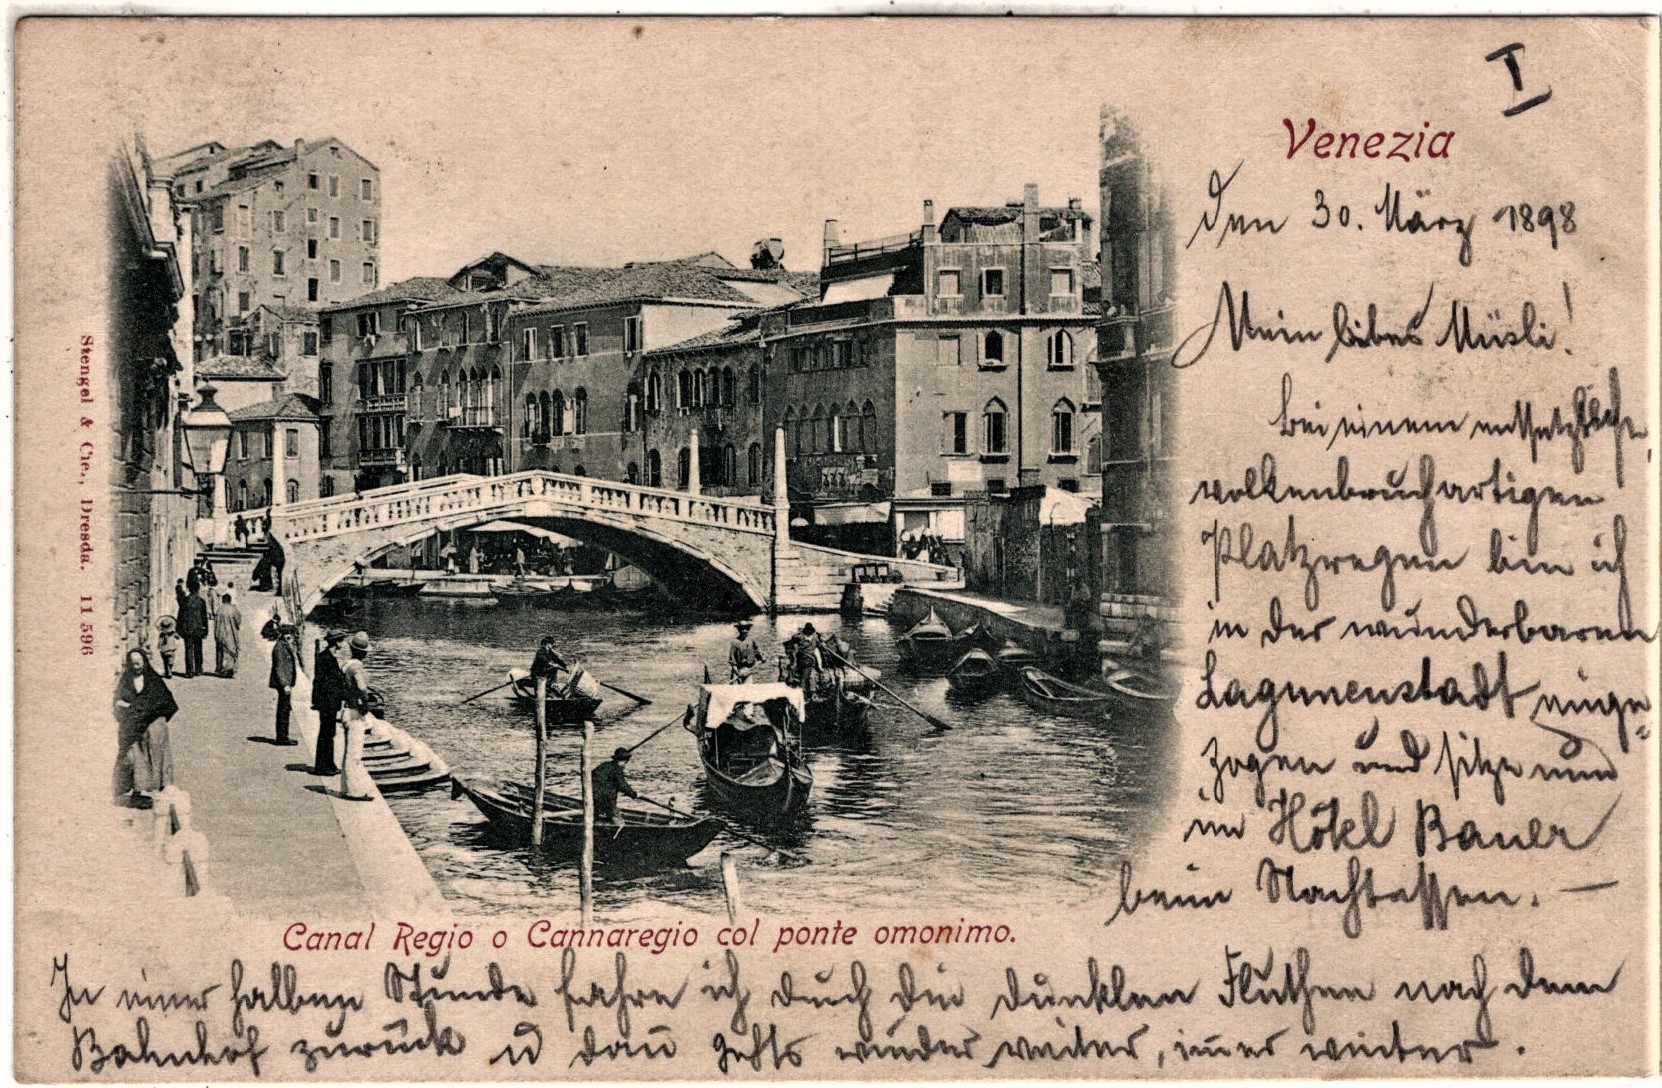 I
Venezia
den 30. März 1898
Mein liebes Müsli!
Bei einem entsetzlichen,
wolkenbruchartigen
Platzregen bin ich
in der wunderbaren
Lagunenstadt einge=
zogen und sitze nun
im Hôtel Bauer
beim Nachtessen. —
Stengel & Cie., Dresda. 11 596
Canal Regio o Cannaregio col ponte omonimo.
In einer halben Stunde fahre ich durch die dunklen Fluthen nach dem
Bahnhof zurück u dañ gehts wieder weiter, im̄er weiter.